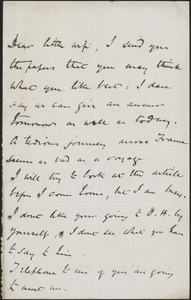 Dear little wife, I send you
the papers that you may think
what you like best: I dare
say we can give an answer
tomorrow as well as today.
A tedious journey across France
seems as bad as a voyage.
I will try to look at the article
before I come home, but I am busy.
I don't like your going to B. H. by
yourself. I don't see what you have
to say to him.
Telephone to me if you are going
to meet me.